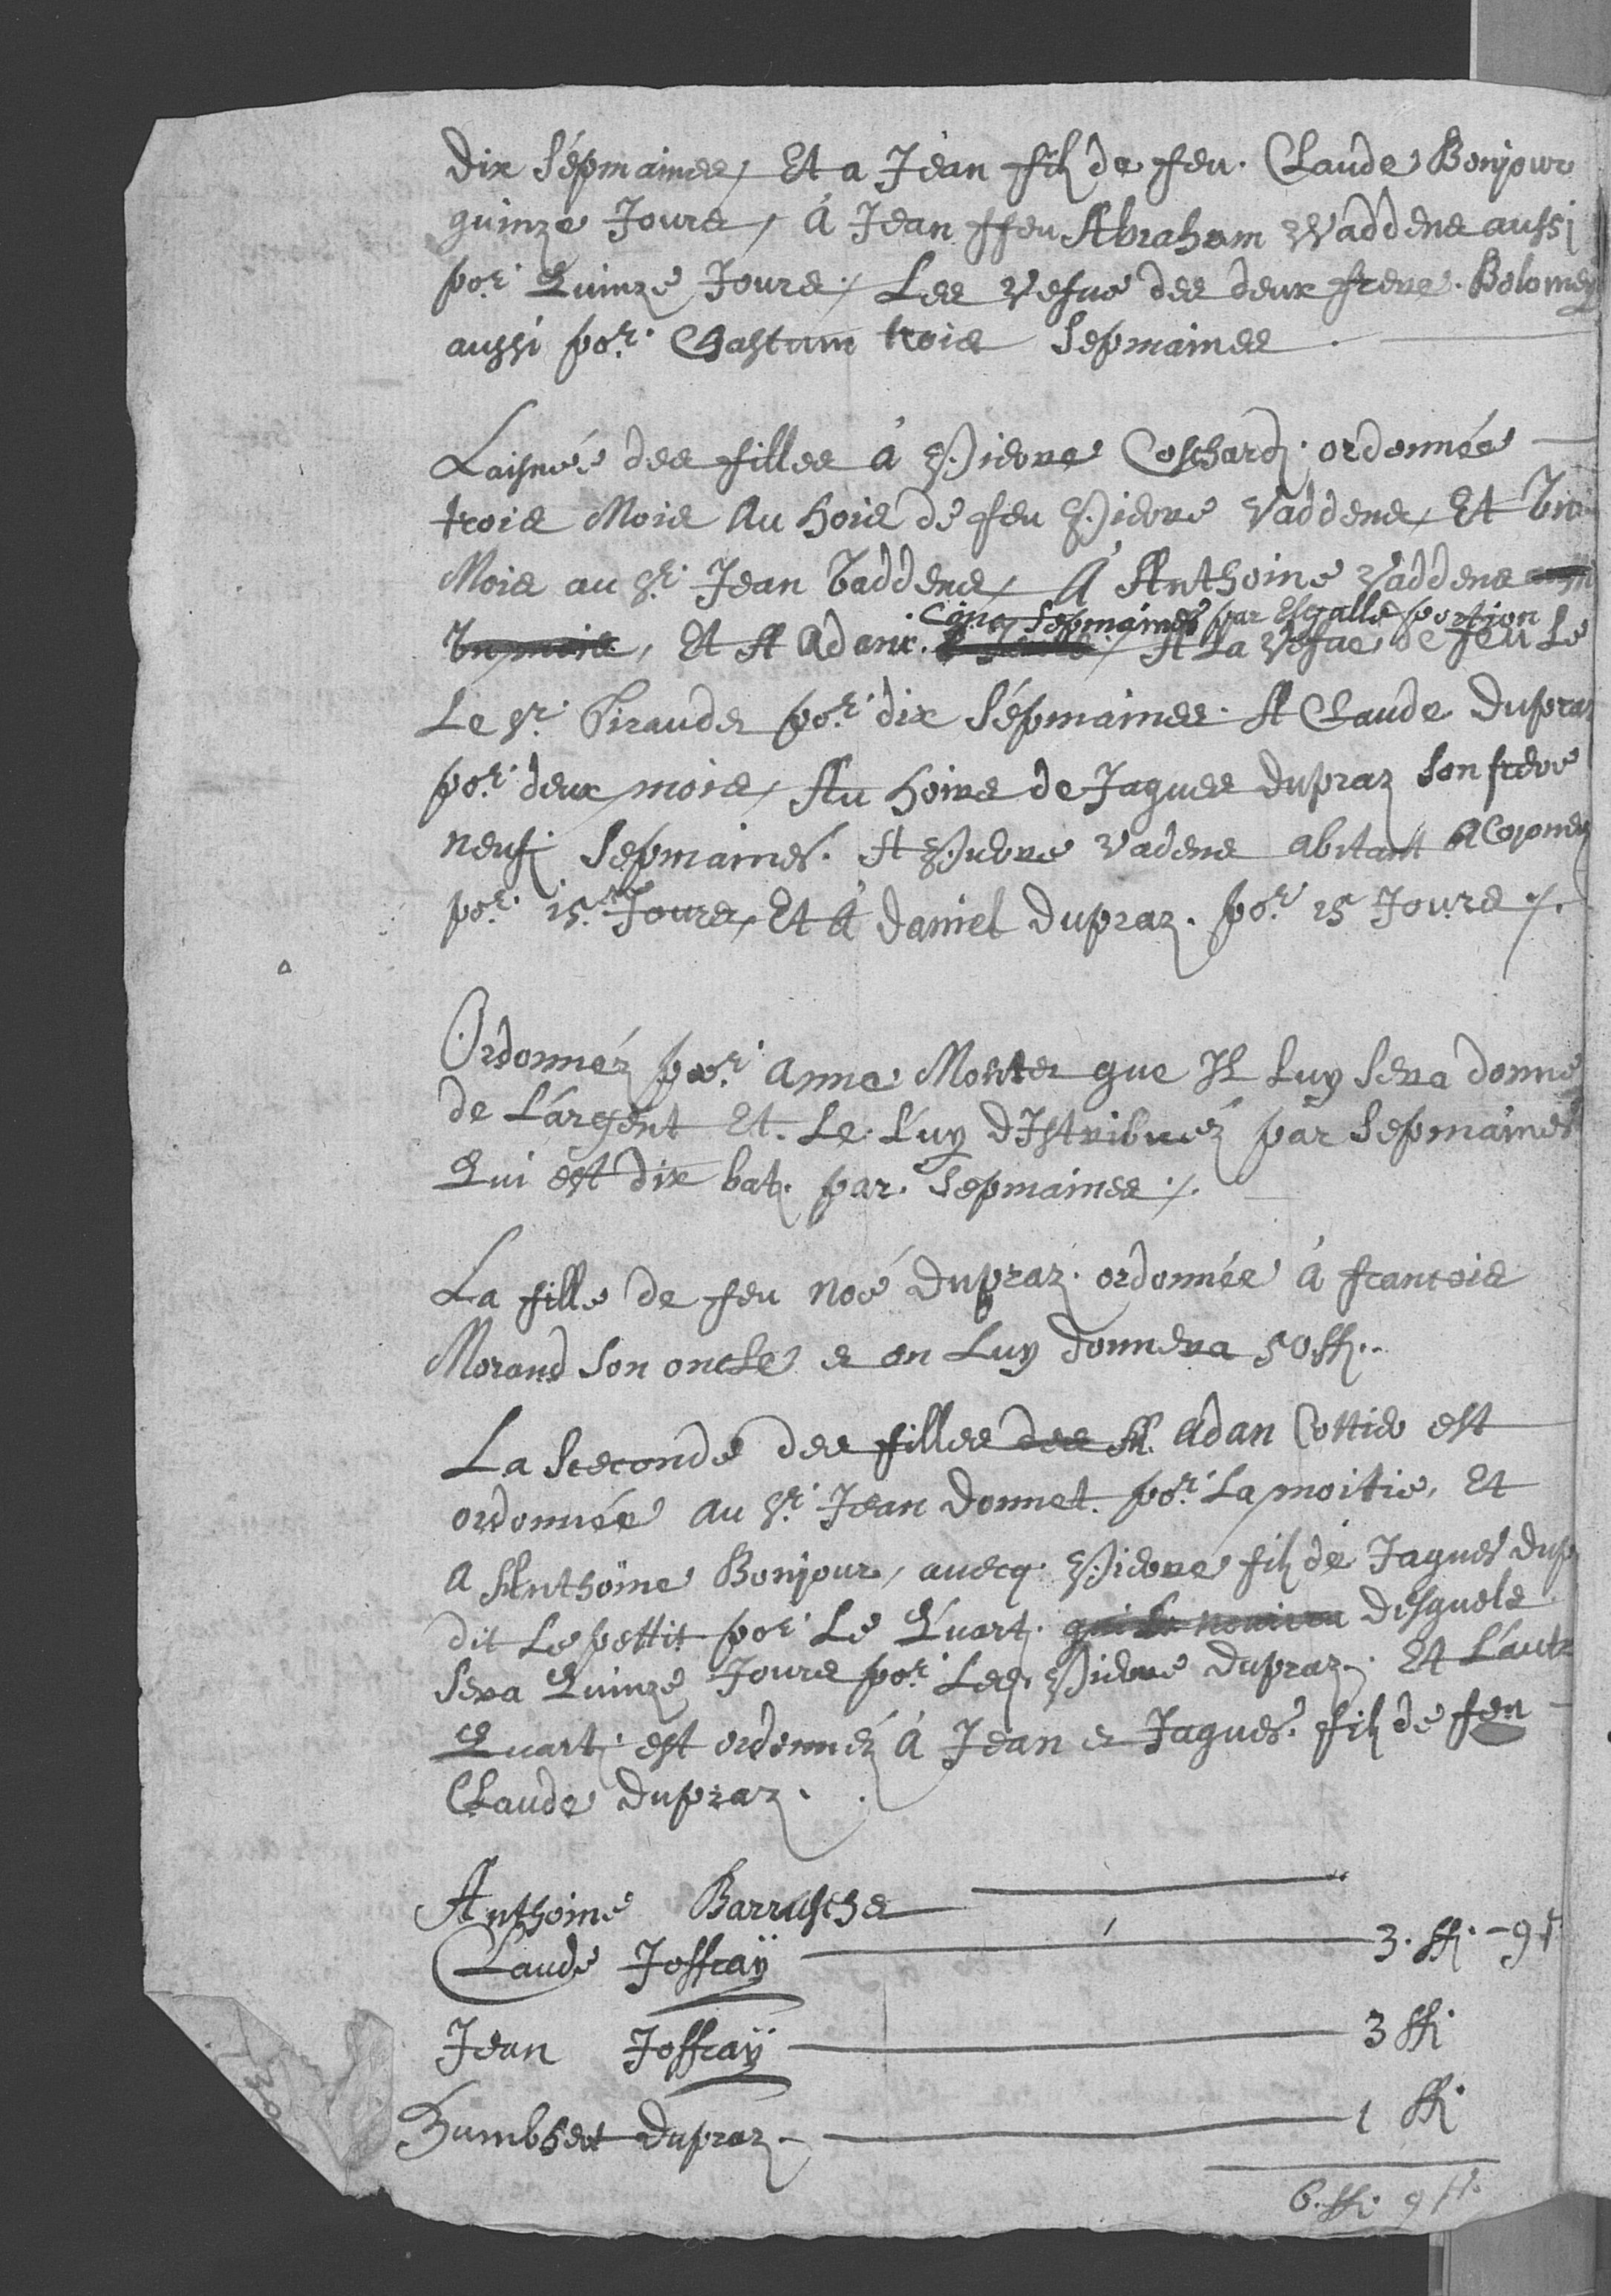 dix Sépmaines, Et a Jean filz de feu. Claude Bonjour
quinze Jours, á Jean ffeu Abraham Vaddens aussi
por. Quinze Jours, Les Vefue des deux frere. Belomey
aussi por. Chascun trois Sepmaines
Laisneé des filles á Pierre Coschard, ordonnée
trois Mois Au hoirs de feu Pierre Vaddens, Et
Mois au Sr. Jean Vaddens, A Anthoine Vaddens
Cinq Sepmaines par Esgalle portion
Vn mois, Et A La Vefue de feu Le
Le Sr. por. dix Sépmaines. A Claude Dupraz
por. deux mois, Au hoirs de Jaques Dupraz son frere
neufz Sepmaines. A Pierre Vadens abitant A
por. 15. Jours, Et A daniel Dupraz. por. 15 Jours /.
Ordonnéz por. Anne que Il Luy Sera donne
de L'argent Et. Le Luy distribuéz par Sepmaines
Qui est dix batz. par. Sepmaines /.
La fille de feu noé Dupraz. ordonnée á francois
Morand Son oncle & on Luy donnera 50 ff..
La Seconde des filles des ff. Adan Cottier est
ordonnée au Sr. Jean Donnet. por. La moitie, Et
a Anthoine Bonjour, auecq Pierre filz de Jaques Dup
dit Le pettit por Le Quart. desquels
Sera Quinze Jours por. Ledz. Pierre Dupraz. Et L'autr
Quart. est ordonnéz á Jean & Jaques. filz de feu
Claude Dupraz.
Anthoine
Claude Joffraÿ 3. ff. - 9 s
Jean Joffraÿ 3 ff.
Humbhert Dupraz. 1 ff.
6. ff. 9 s.